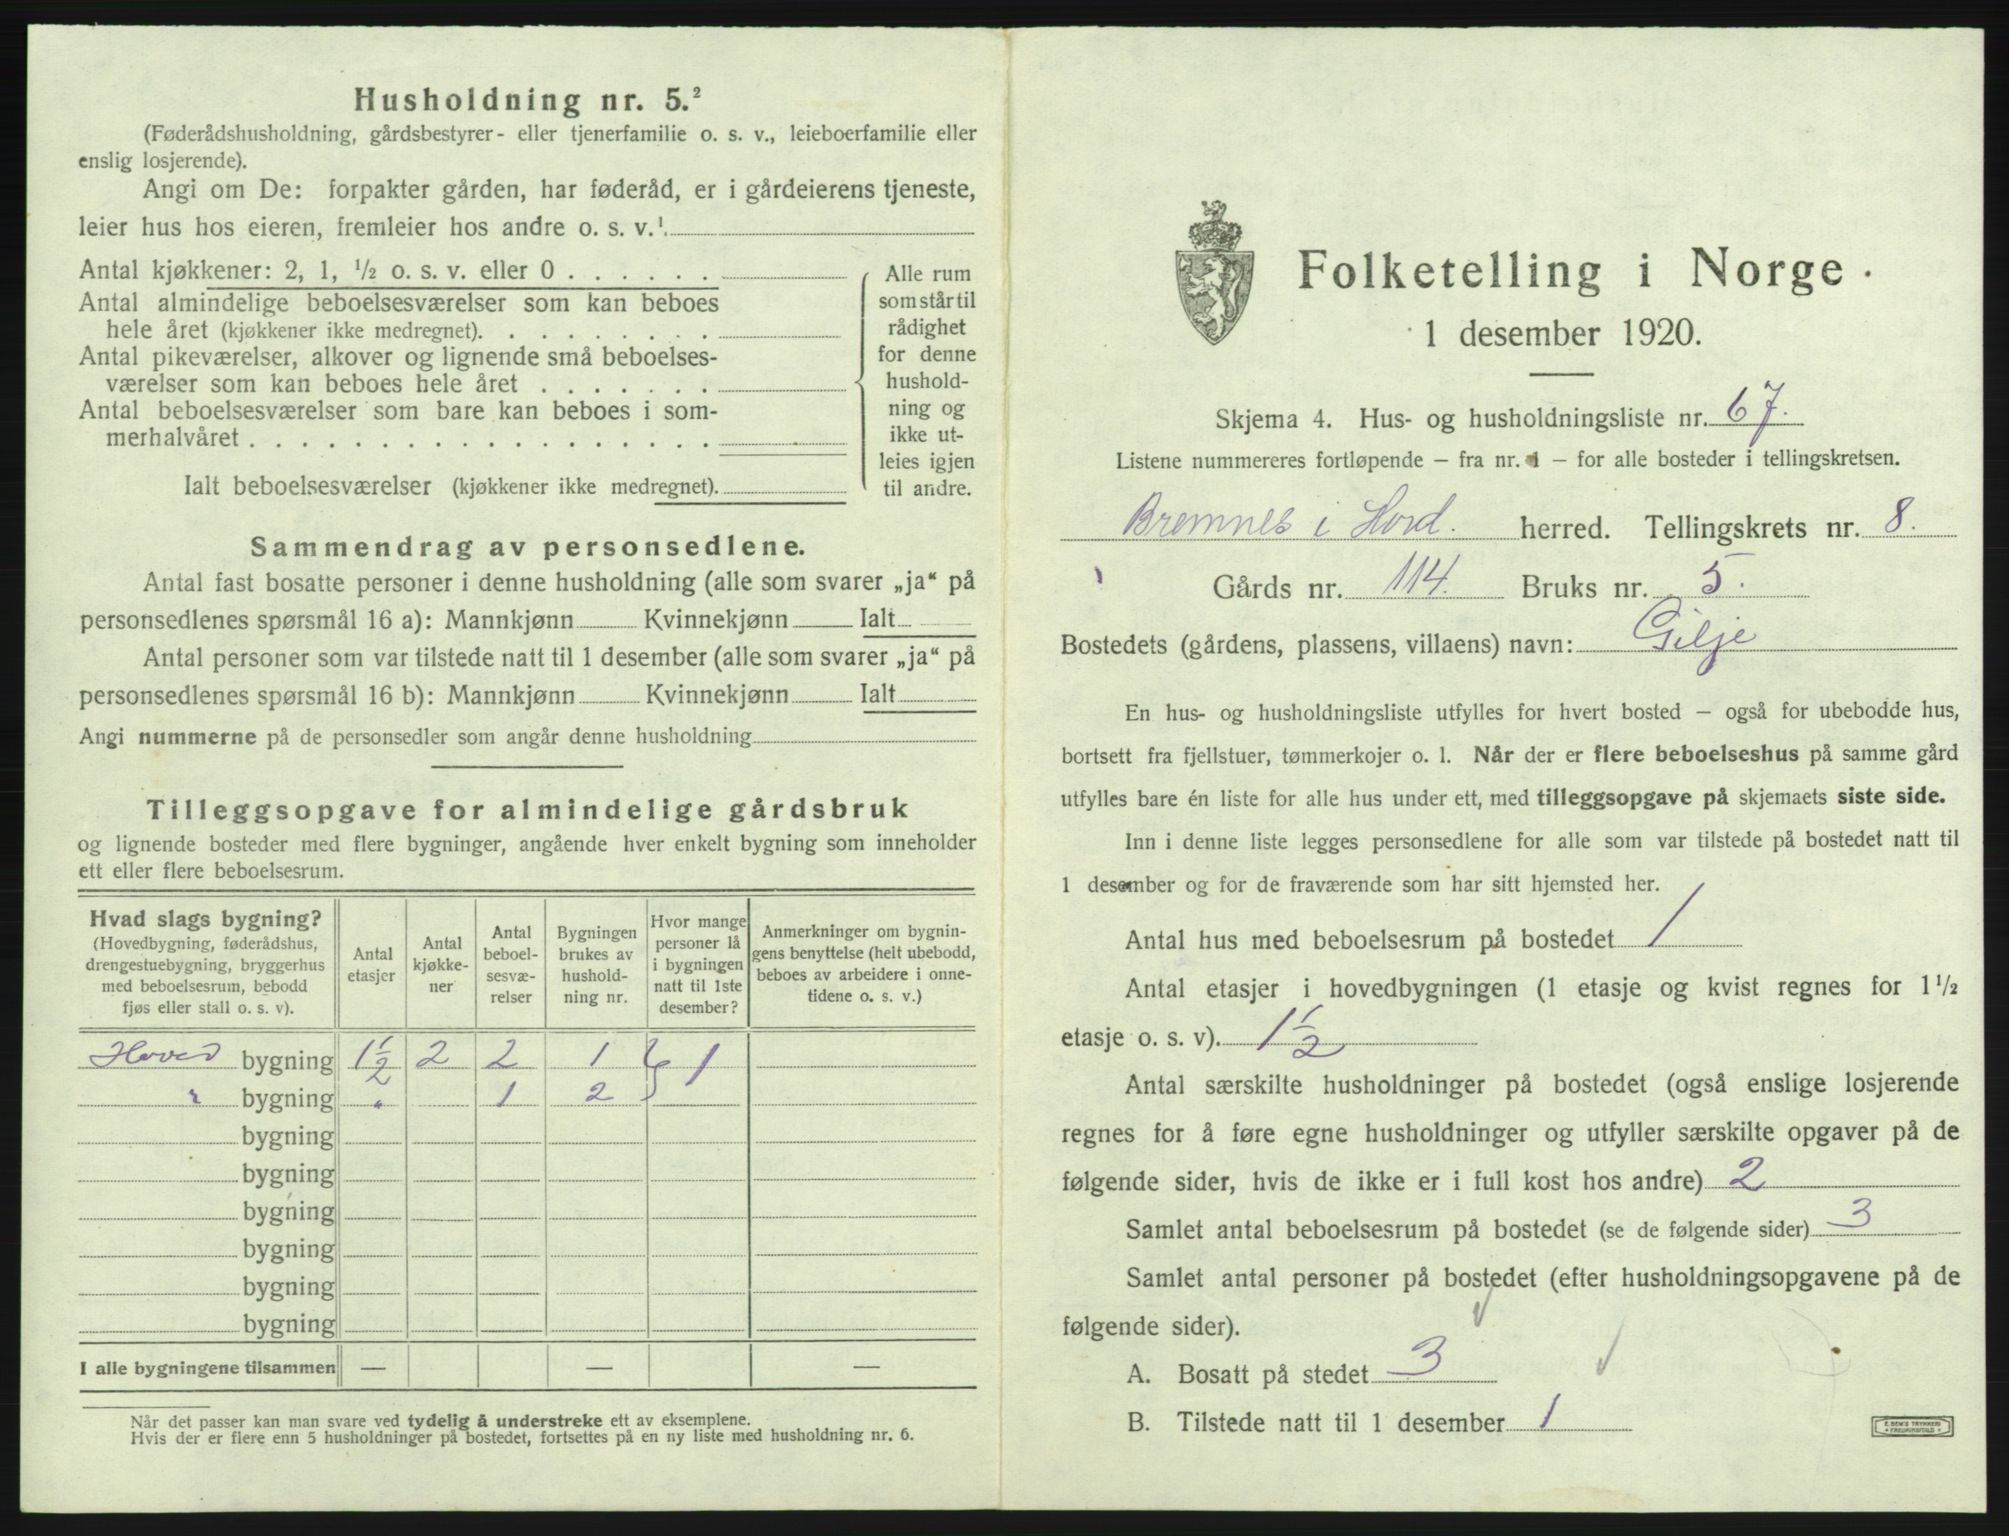 Husholdning nr. 5.²
(Føderådshusholdning, gårdsbestyrer- eller tjenerfamilie o. s. v., leieboerfamilie eller
enslig losjerende).
Angi om De: forpakter gården, har føderåd, er i gårdeierens tjeneste,
leier hus hos eieren, fremleier hos andre o. s. v.¹
Antal kjøkkener: 2, 1, ½ o. s. v. eller 0 . . . . . .
Antal almindelige beboelsesværelser som kan beboes
hele året (kjøkkener ikke medregnet). . . . . . . . .
Antal pikeværelser, alkover og lignende små beboelses-
værelser som kan beboes hele året . . . . . . .
Antal beboelsesværelser som bare kan beboes i som-
merhalvåret . . . . . . . . . . . . . . . . . .
Ialt beboelsesværelser (kjøkkener ikke medregnet).
Alle rum
som står til
rådighet
for denne
hushold-
ning og
ikke ut-
leies igjen
til andre.
Sammendrag av personsedlene.
Antal fast bosatte personer i denne husholdning (alle som svarer „ja“ på
personsedlenes spørsmål 16 a): Mannkjønn Kvinnekjønn Ialt
Antal personer som var tilstede natt til 1 desember (alle som svarer „ja“ på
personsedlenes spørsmål 16 b): Mannkjønn Kvinnekjønn Ialt
Angi nummerne på de personsedler som angår denne husholdning
Tilleggsopgave for almindelige gårdsbruk
og lignende bosteder med flere bygninger, angående hver enkelt bygning som inneholder
ett eller flere beboelsesrum.
Hvad slags bygning?
(Hovedbygning, føderådshus,
drengestuebygning, bryggerhus
med beboelsesrum, bebodd
fjøs eller stall o. s. v).
Antal
etasjer
Antal
kjøkke-
ner
Antal
beboel-
sesvæ-
relser
Bygningen
brukes av
hushold-
ning nr.
Hvor mange
personer lå
i bygningen
natt til 1ste
desember?
Anmerkninger om bygnin-
gens benyttelse (helt ubebodd,
beboes av arbeidere i onne-
tidene o. s. v.)
Hoved bygning 1½ 2 2 1 } 1
" bygning " 1 2
bygning
bygning
bygning
bygning
bygning
bygning
I alle bygningene tilsammen — — —
Når det passer kan man svare ved tydelig å understreke ett av eksemplene.
Hvis der er flere enn 5 husholdninger på bostedet, fortsettes på en ny liste med husholdning nr. 6.
Folketelling i Norge
1 desember 1920.
Skjema 4. Hus- og husholdningsliste nr. 67.
Listene nummereres fortløpende – fra nr. 1 – for alle bosteder i tellingskretsen.
Bremnes i Hord. herred. Tellingskrets nr. 8.
Gårds nr. 114. Bruks nr. 5.
Bostedets (gårdens, plassens, villaens) navn: Gilje
En hus- og husholdningsliste utfylles for hvert bosted – også for ubebodde hus,
bortsett fra fjellstuer, tømmerkojer o. l. Når der er flere beboelseshus på samme gård
utfylles bare én liste for alle hus under ett, med tilleggsopgave på skjemaets siste side.
Inn i denne liste legges personsedlene for alle som var tilstede på bostedet natt til
1 desember og for de fraværende som har sitt hjemsted her.
Antal hus med beboelsesrum på bostedet 1
Antal etasjer i hovedbygningen (1 etasje og kvist regnes for 1½
etasje o. s. v). 1½
Antal særskilte husholdninger på bostedet (også enslige losjerende
regnes for å føre egne husholdninger og utfyller særskilte opgaver på de
følgende sider, hvis de ikke er i full kost hos andre) 2
Samlet antal beboelsesrum på bostedet (se de følgende sider) 3
Samlet antal personer på bostedet (efter husholdningsopgavene på de
følgende sider).
A. Bosatt på stedet 3
B. Tilstede natt til 1 desember 1